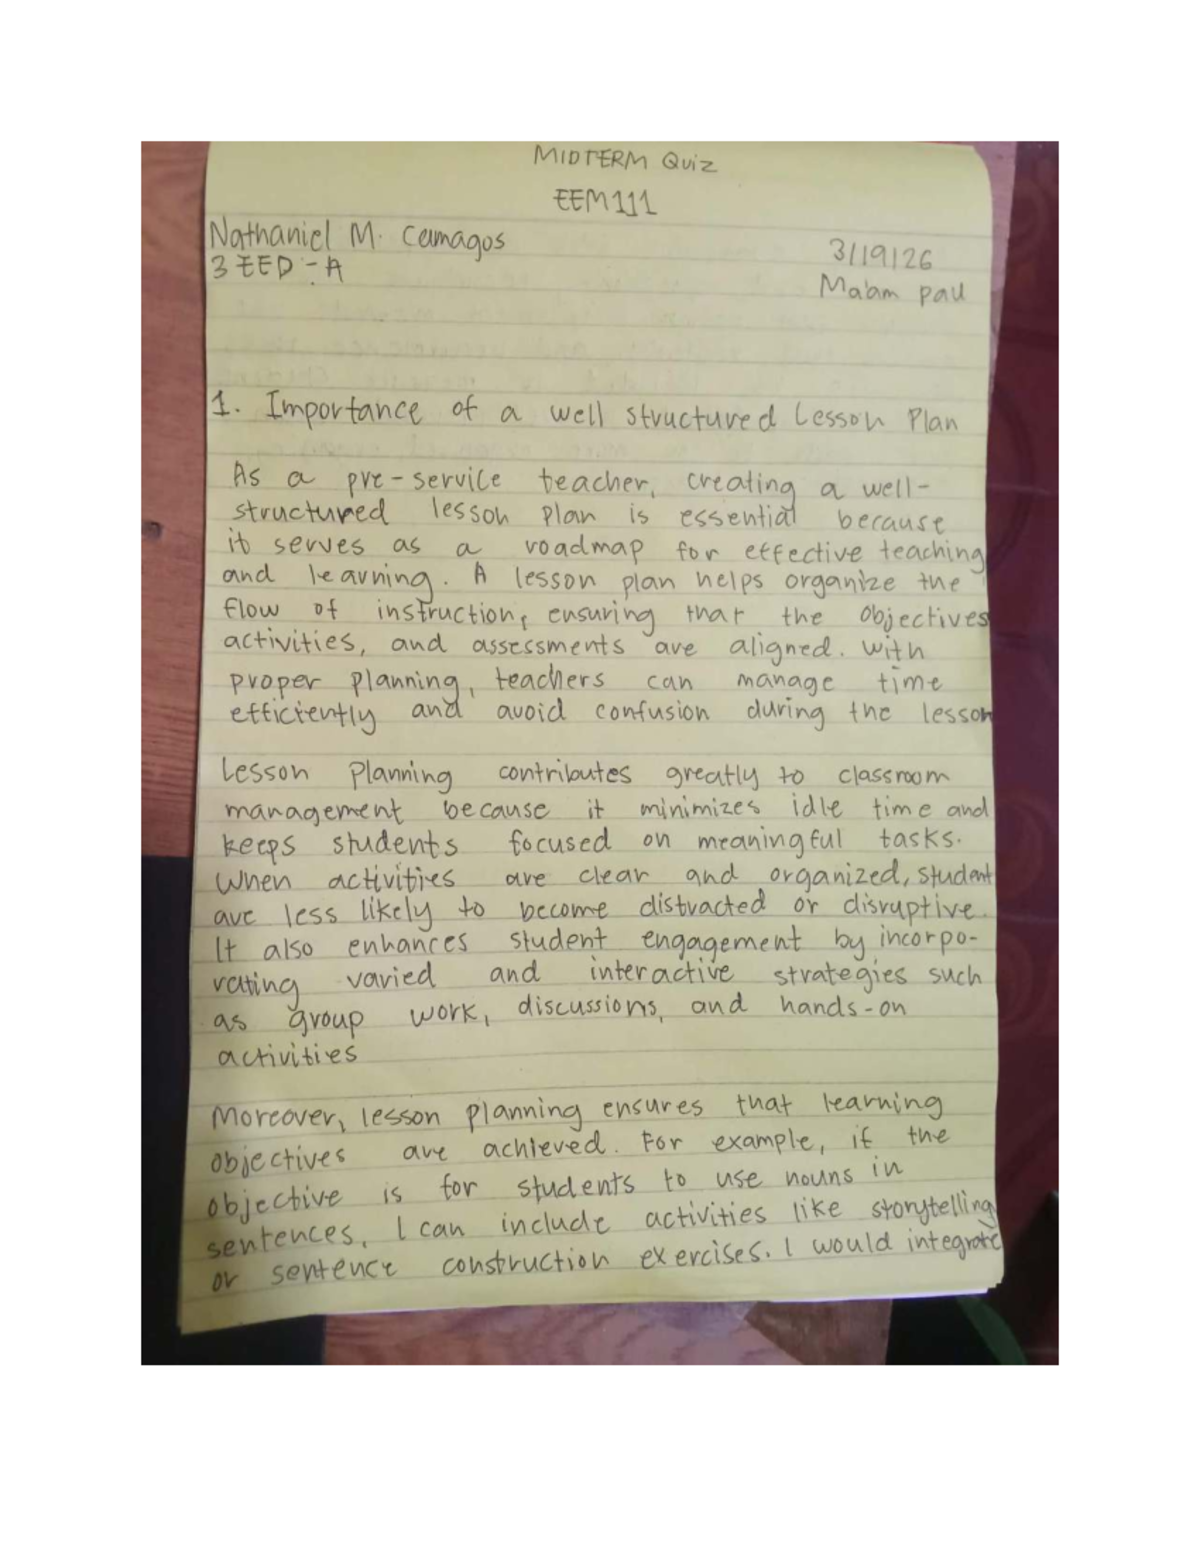 MIDTERM Quiz
EEM111
Nathaniel M. Camagos
3 EED - A
3/19/26
Ma'am pau
1. Importance of a well structured Lesson Plan
As a pre-service teacher, creating a well-
structured lesson plan is essential because
it serves as a roadmap for effective teaching
and learning. A lesson plan helps organize the
flow of instruction, ensuring that the objectives
activities, and assessments are aligned. With
proper planning, teachers can manage time
efficiently and avoid confusion during the lesson
Lesson Planning contributes greatly to classroom
management because it minimizes idle time and
keeps students focused on meaningful tasks.
When activities are clear and organized, student
are less likely to become distracted or disruptive.
It also enhances student engagement by incorpo-
rating varied and interactive strategies such
as group work, discussions, and hands-on
activities
Moreover, lesson planning ensures that learning
objectives are achieved. For example, if the
objective is for students to use nouns in
sentences, I can include activities like storytelling
or sentence construction exercises. I would integrate